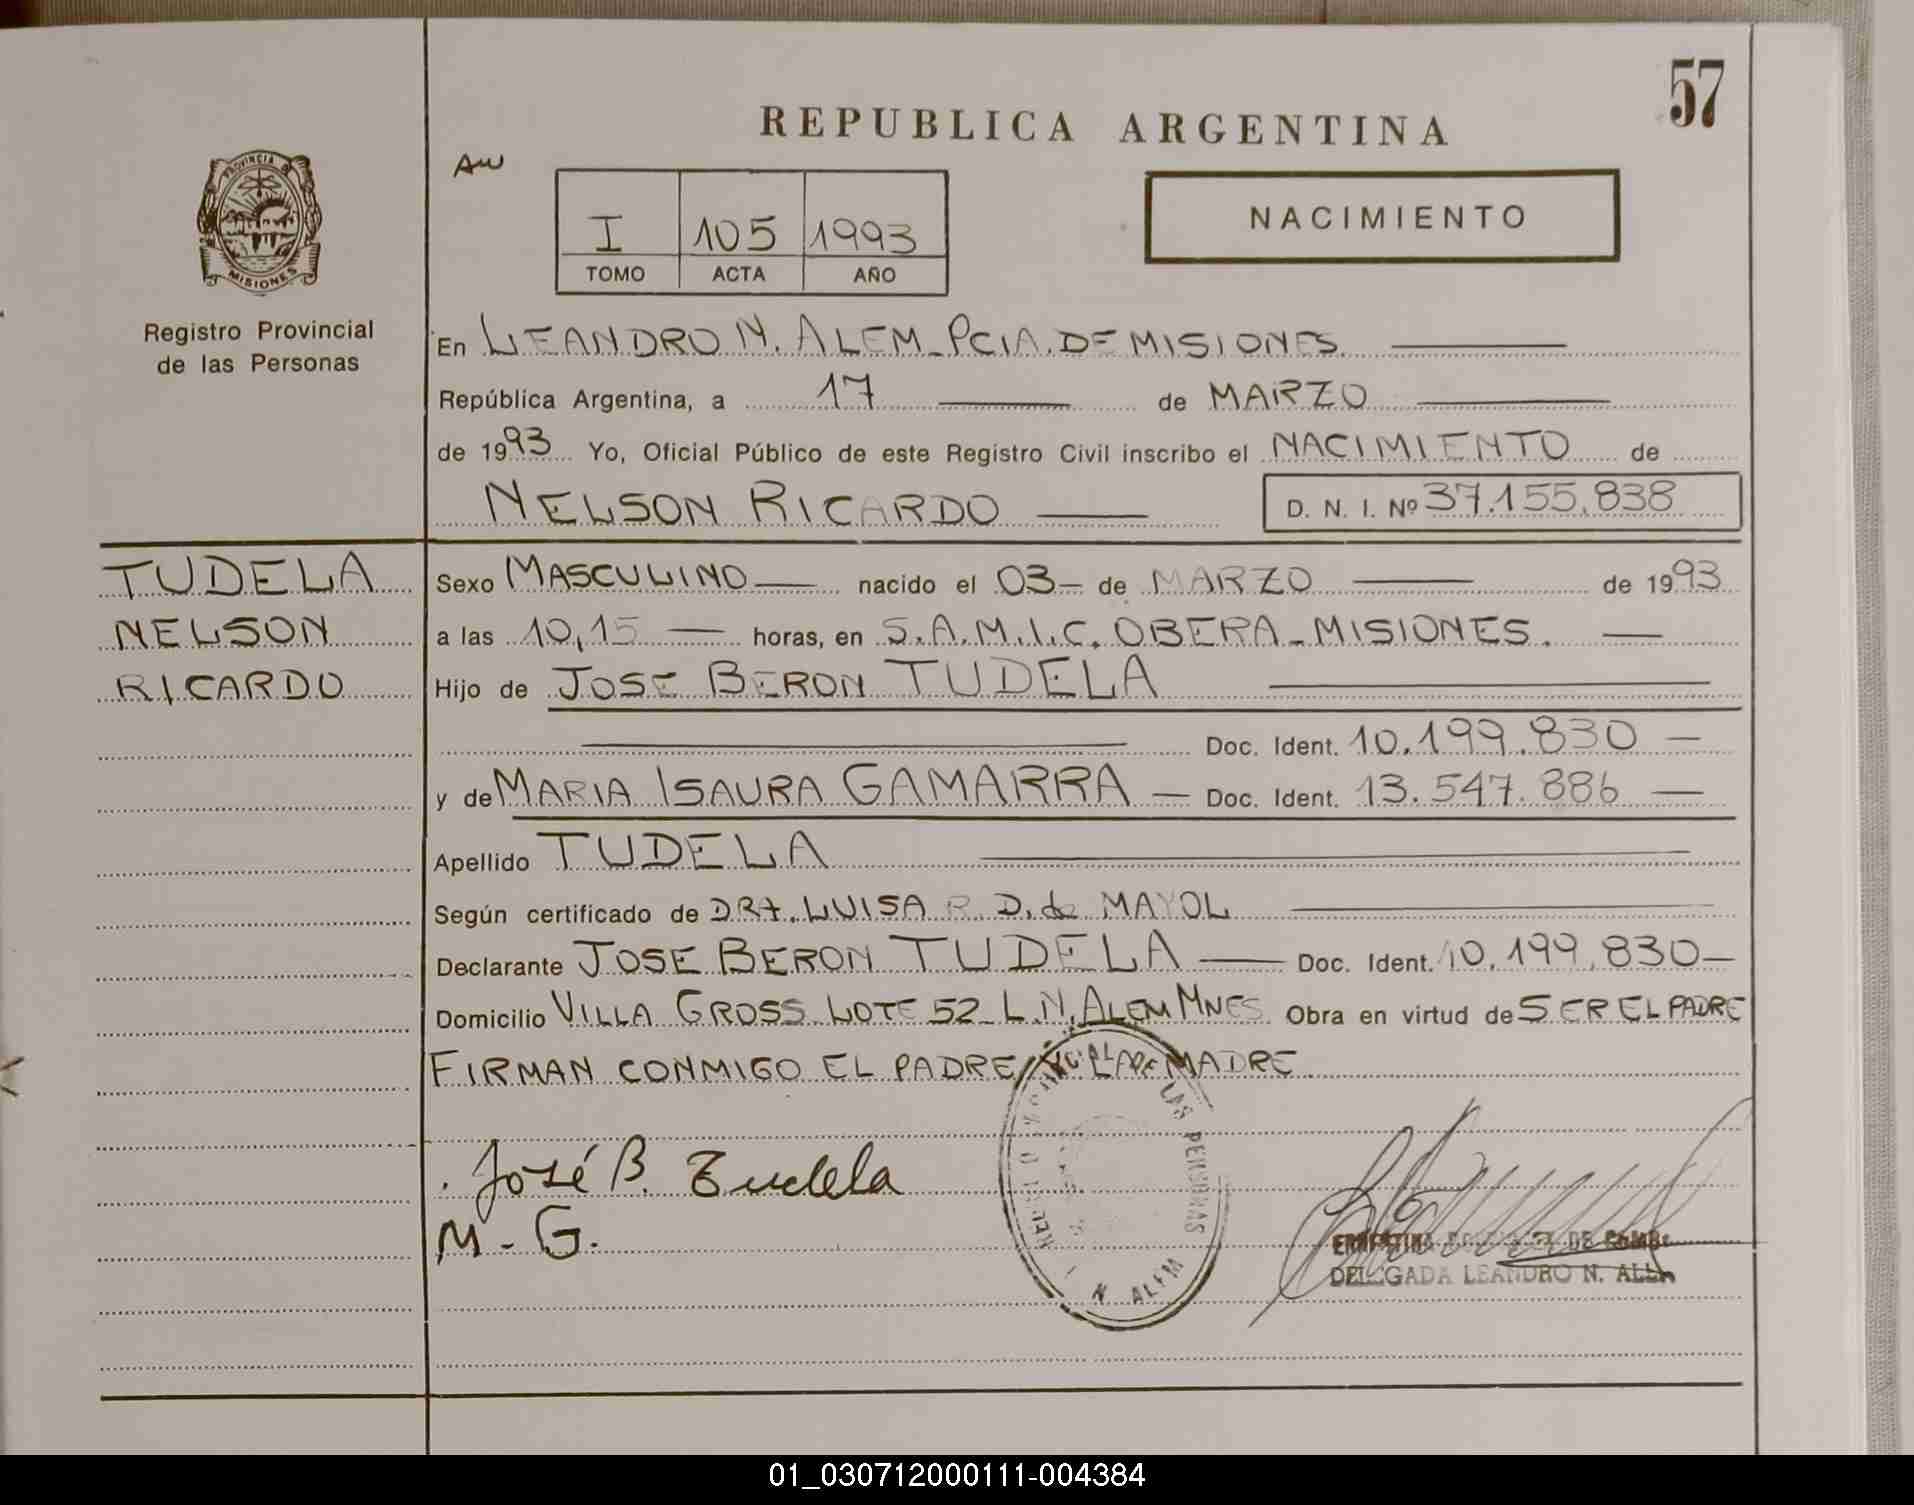 57
REPUBLICA ARGENTINA
PROVINCIA DE
MISIONES
I 105 1993
TOMO ACTA AÑO
NACIMIENTO
Registro Provincial
de las Personas
En LEANDRO N. ALEM - PCIA. DE MISIONES
República Argentina, a 17 de MARZO
de 1993 Yo, Oficial Público de este Registro Civil inscribo el NACIMIENTO de
NELSON RICARDO D. N. I. Nº 37.155.838
TUDELA
NELSON
RICARDO
Sexo MASCULINO nacido el 03 - de MARZO de 1993
a las 10,15 horas, en S.A.M.I.C. OBERA - MISIONES.
Hijo de JOSE BERON TUDELA
Doc. Ident. 10.199.830 -
y de MARIA ISAURA GAMARRA - Doc. Ident. 13.547.886 -
Apellido TUDELA
Según certificado de DRA. LUISA R. D. de MAYOL
Declarante JOSE BERON TUDELA Doc. Ident. 10.199.830 -
Domicilio VILLA GROSS LOTE 52 - L.N. ALEM MNES Obra en virtud de SER EL PADRE
FIRMAN CONMIGO EL PADRE Y LA MADRE
José B. Tudela
M - G.
DE LAS PERSONAS
N ALEM
DE
DELEGADA LEANDRO N. ALEM
01_030712000111-004384